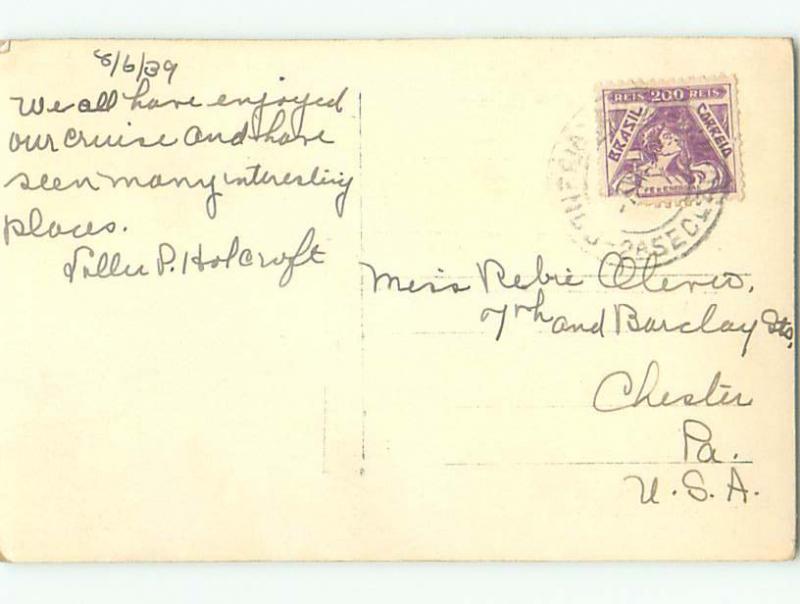 8/6/39
We all have enjoyed
our cruise and have
seen many interesting
places.
P. Holcroft
REIS 200 REIS
BRASIL CORREIO
Miss Rebie
7th and Barclay Sts,
Chester
Pa.
U.S.A.